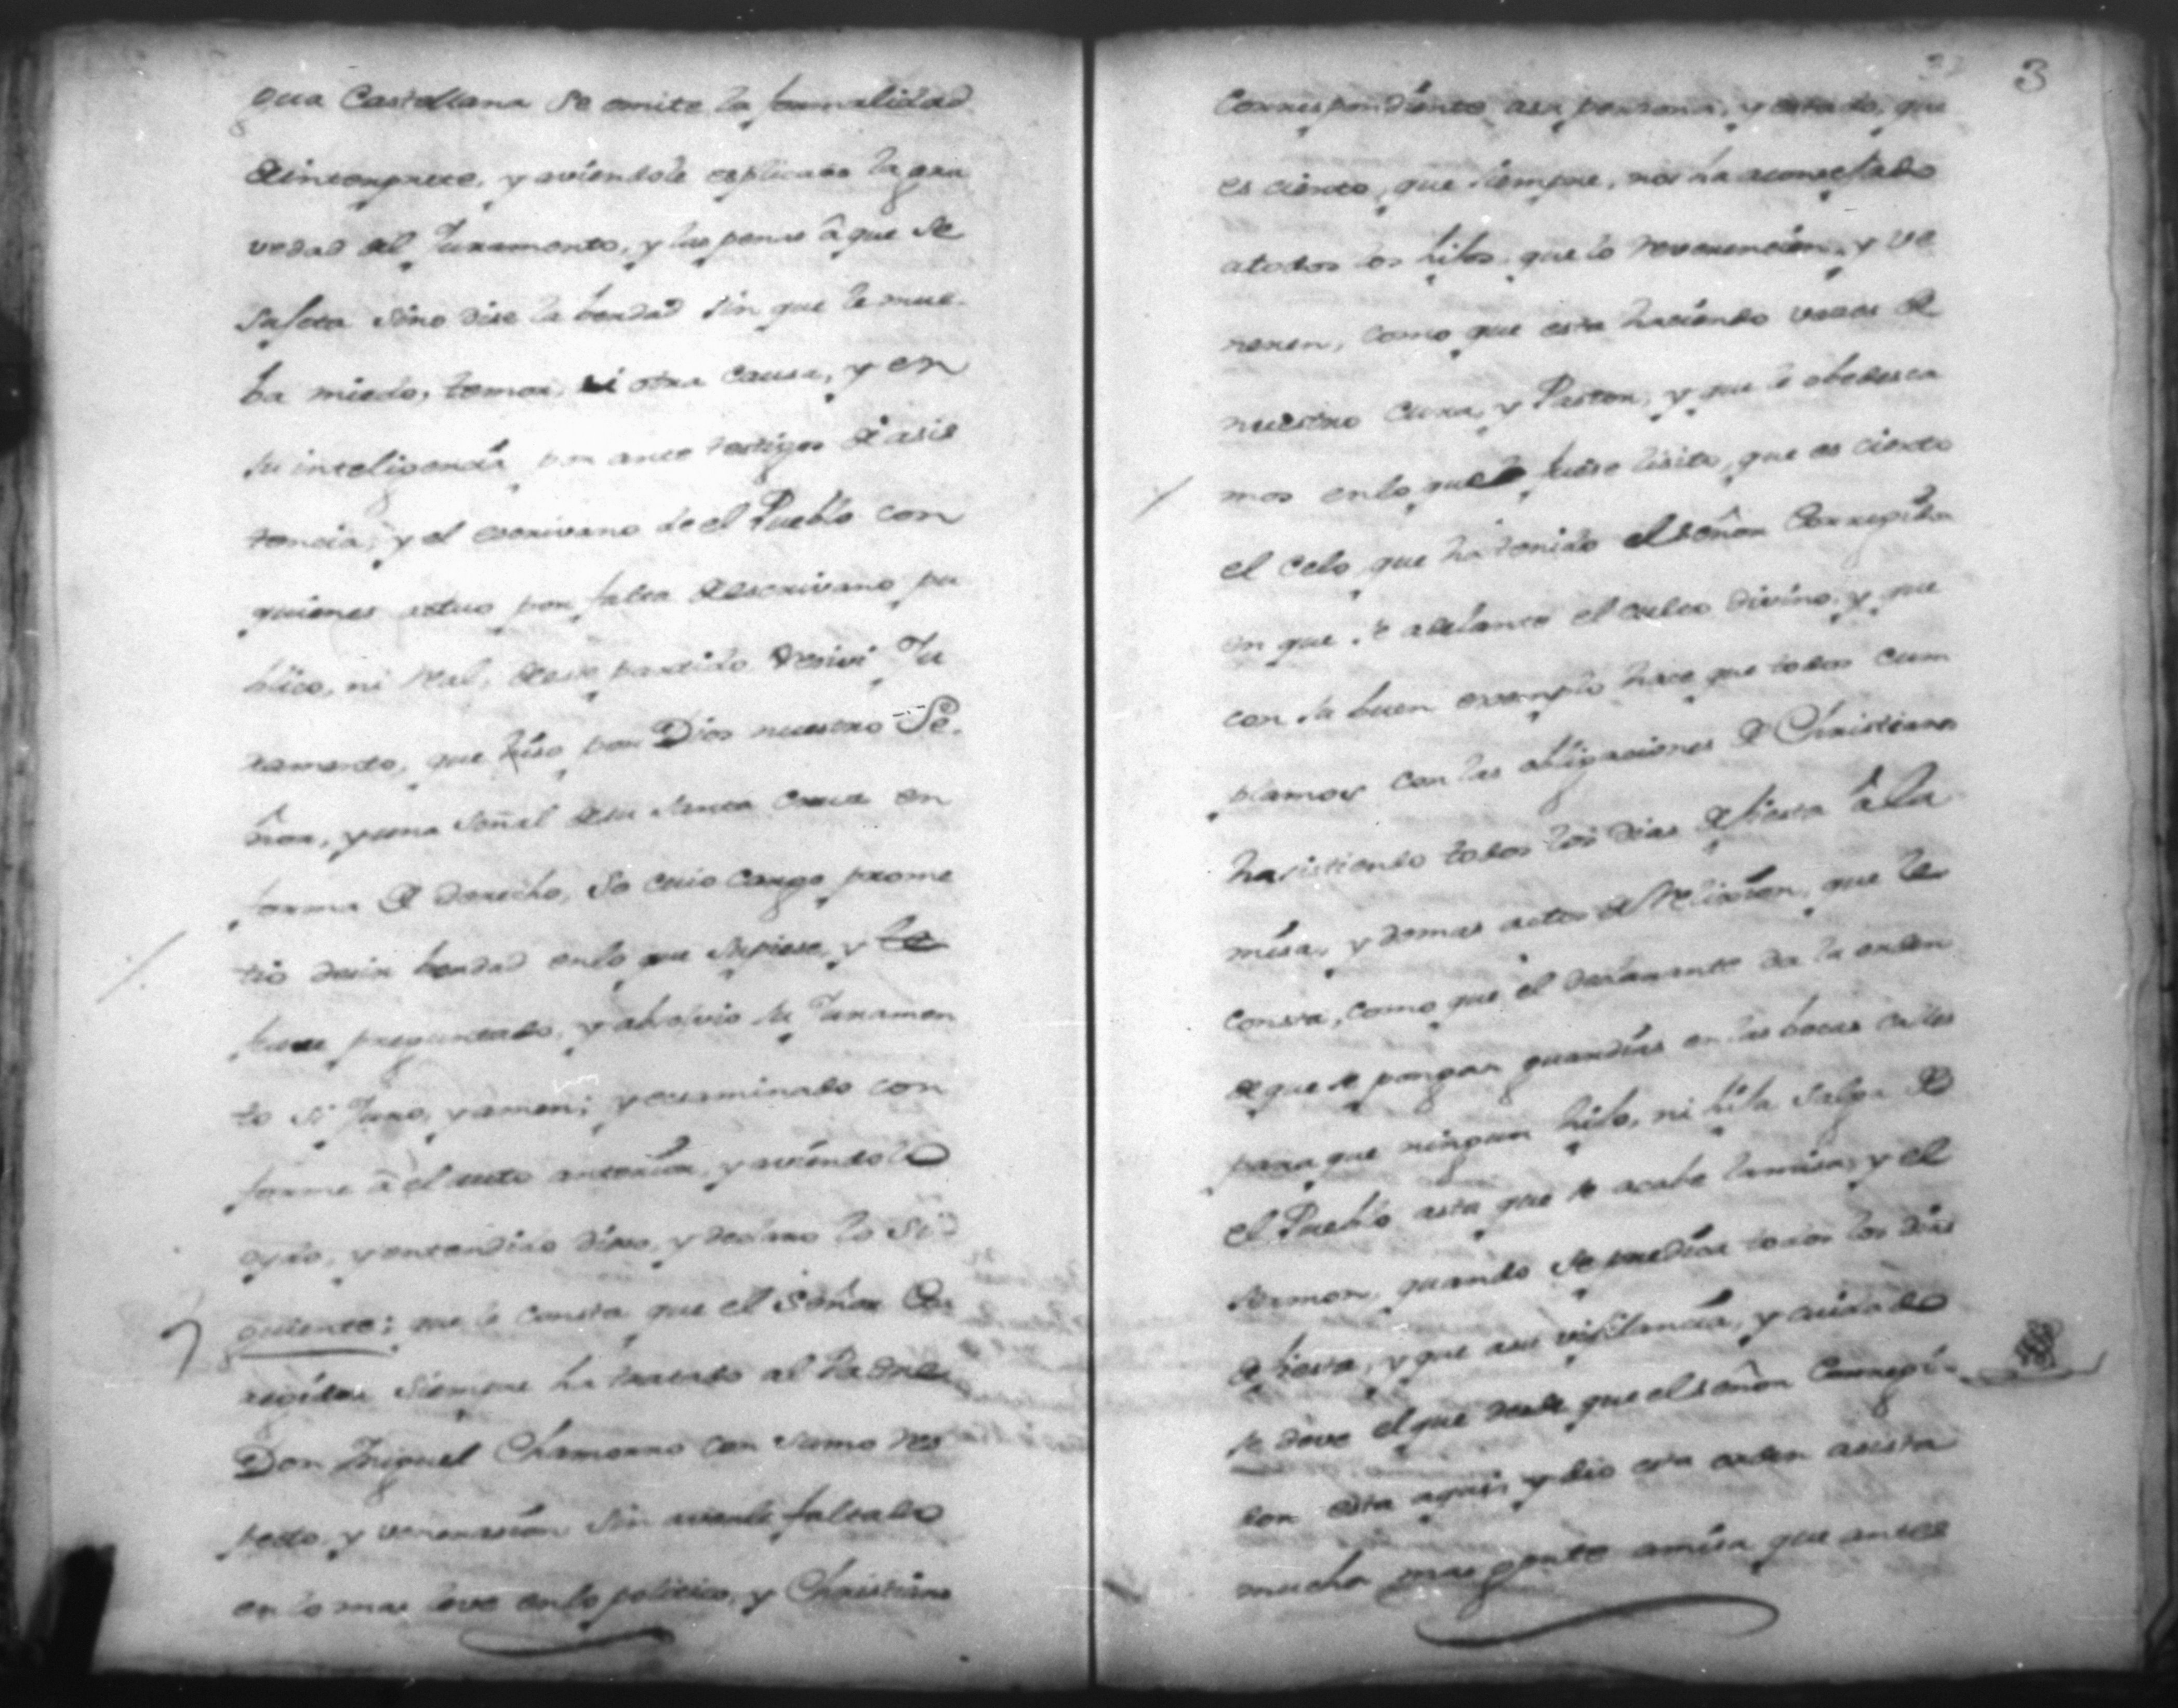 gua Castellana se omite la formalidad
de interprete, y aviendole esplicado la gra
vedad del Juramento, y las penas â que se
sujeta sino dise la berdad sin que le mue-
ba miedo, temor, ni otra causa, y en
su inteligencia por ante testigos de asis
tencia, y el escrivano de el Pueblo con
quienes actuo por falta de escrivano pu
blico, ni real, deste partido resivi Ju
ramento, que hiso por Dios nuestro Se-
ñor, y una señal de su Santa Cruz en
forma de derecho, so cuio cargo prome
tio desir berdad enlo que supiese, y le
fuere preguntado, y absolvio su Juramen
to si Juro, y amen; y examinado con
forme â el auto anterior, y aviendolo
oydo, y entendido dixo, y declaro lo si
guiente; que le consta que el Señor Cor
regidor siempre ha tratado al Padre
Don Miguel Chamorro con sumo res
pecto, y venerasion sin averle faltado
en lo mas leve enlo politico, y Christiano
3
correspondiente asu persona, y estado, que
es cierto, que siempre, nos ha aconsejado
atodos los hijos, que lo reverencien, y ve
neren, como que esta haciendo veces de
nuestro Cura, y Pastor, y que le obedesca
mos enlo que fuese lisito, que es cierto
el celo, que ha tenido el Señor Corregidor
en que se adelante el culto divino, y que
con su buen exemplo hace que todos cum
plamos con las obligaciones de Christianos
hasistiendo todos los dias de fiesta â la
misa, y demas actos de Religion, que le
consta, como que el declarante da la orden
de que se pongan guardias en las bocas calles
para que ningun hijo, ni hija salga de
el Pueblo asta que se acabe la misa, y el
sermon, quando se predica todos los dias
de fiesta, y que asu vijilancia, y cuidado
se deve el que desde que el señor Corregi-
dor esta aqui, y dio esta orden asista
mucha mas gente amisa que antes